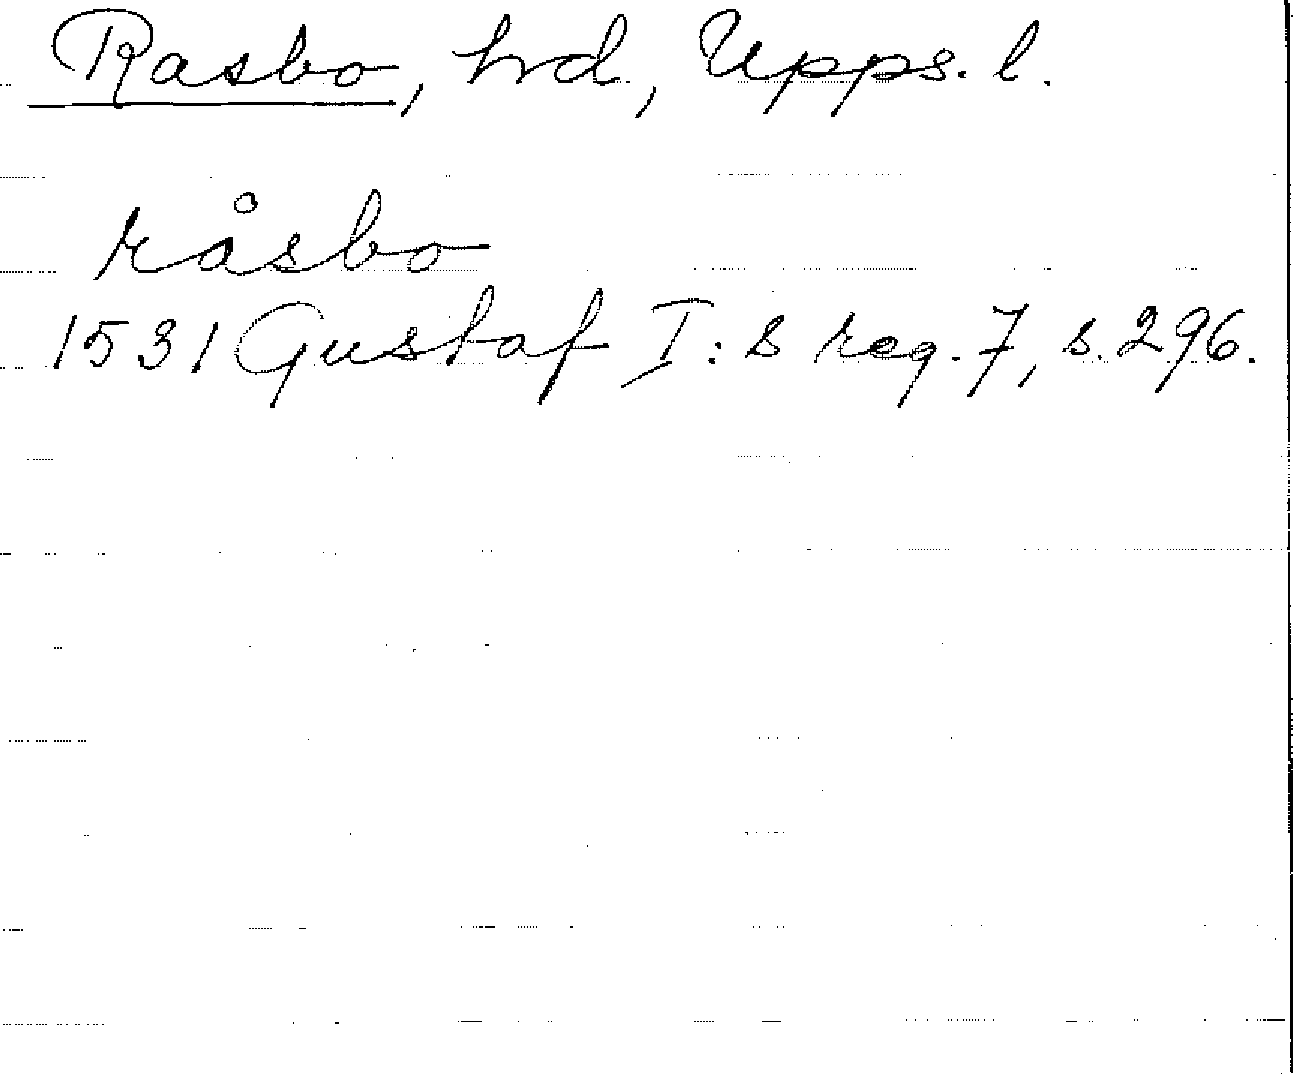 Rasbo, hrd, Upps. l.
råsbo
1531 Gustaf I:s reg. 7, s. 296.